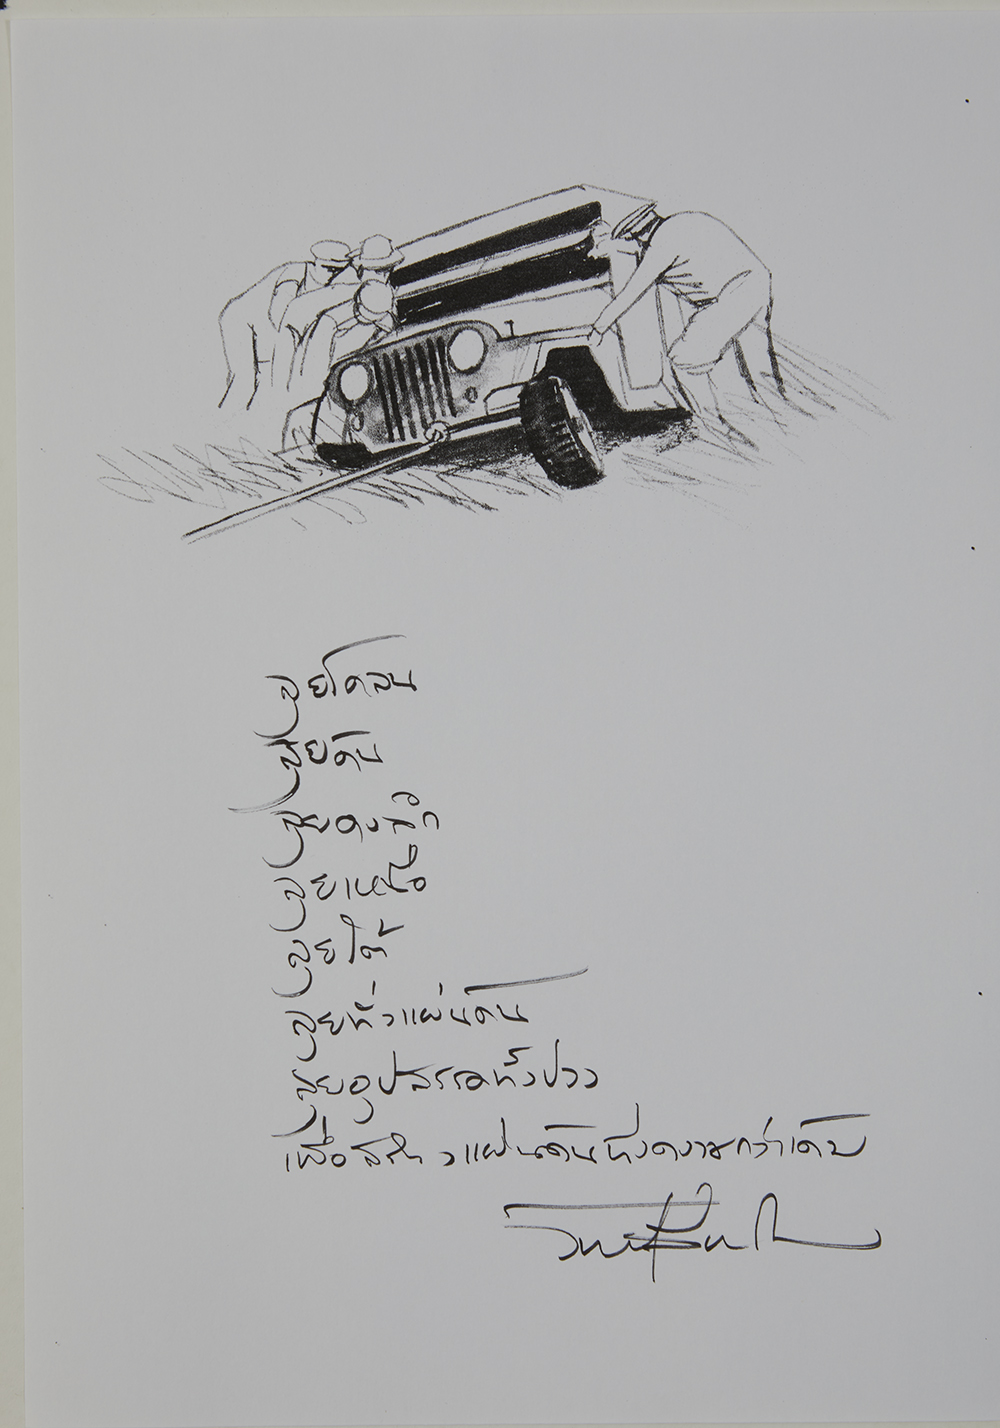 ลุยโคลน
ลุยดิน
ลุยดงรก
ลุยเหนือ
ลุยใต้
ลุยทั่วแผ่นดิน
ลุยอุปสรรคทั้งปวง
เพื่อสร้างแผ่นดินที่งดงามกว่าเดิม